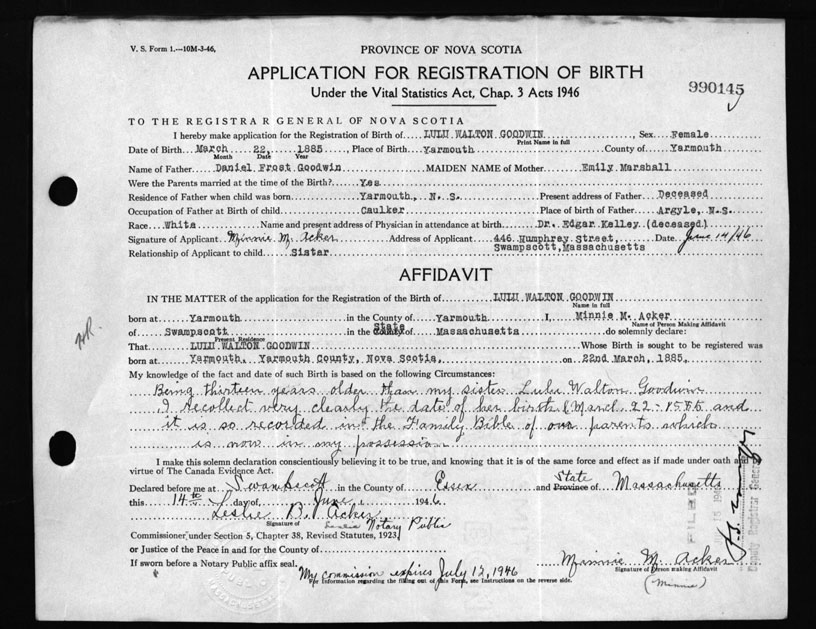 V. S. Form 1.—10M-3-46,
PROVINCE OF NOVA SCOTIA
APPLICATION FOR REGISTRATION OF BIRTH
Under the Vital Statistics Act, Chap. 3 Acts 1946
990145
TO THE REGISTRAR GENERAL OF NOVA SCOTIA
I hereby make application for the Registration of Birth of LULU WALTON GOODWIN, Sex Female
Print Name in full
Date of Birth March 22, 1885 Place of Birth Yarmouth County of Yarmouth
Month Date Year
Name of Father Daniel Frost Goodwin MAIDEN NAME of Mother Emily Marshall
Were the Parents married at the time of the Birth? Yes
Residence of Father when child was born Yarmouth, N. S. Present address of Father Deceased
Occupation of Father at Birth of child Caulker Place of Birth of Father Argyle, N.S.
Race White Name and present address of Physician in attendance at birth Dr. Edgar Kelley (deceased)
Signature of Applicant Minnie M. Acker Address of Applicant 446 Humphrey Street, Date June 14/46
Swampscott, Massachusetts
Relationship of Applicant to child Sister
AFFIDAVIT
IN THE MATTER of the application for the Registration of the Birth of LULU WALTON GOODWIN
Name in full
born at Yarmouth in the County of Yarmouth I, Minnie M. Acker
Name of Person Making Affidavit
of Swampscott in the County of State Massachusetts do solemnly declare:
Present Residence
That LULU WALTON GOODWIN Whose Birth is sought to be registered was
born at Yarmouth, Yarmouth County, Nova Scotia, on 22nd March, 1885,
My knowledge of the fact and date of such Birth is based on the following Circumstances:
Being thirteen years older than my sister Lulu Walton Goodwin
I recollect very clearly the date of her birth (March 22 - 1885 and
it is so recorded in the Family Bible of our parents which
is now in my possession
I make this solemn declaration conscientiously believing it to be true, and knowing that it is of the same force and effect as if made under oath and by
virtue of The Canada Evidence Act.
Declared before me at Swampscott in the County of Essex and Province of State Massachusetts
this 14th day of June, 1946
Leslie B. Acker
Signature of Leslie Notary Public
Commissioner under Section 5, Chapter 38, Revised Statutes, 1923,
or Justice of the Peace in and for the County of
If sworn before a Notary Public affix seal.
My commission expires July 12, 1946
Minnie M. Acker
Signature of Person making Affidavit
(Minnie)
For information regarding the filling out of this Form, see Instructions on the reverse side.
FILED
Deputy Registrar General